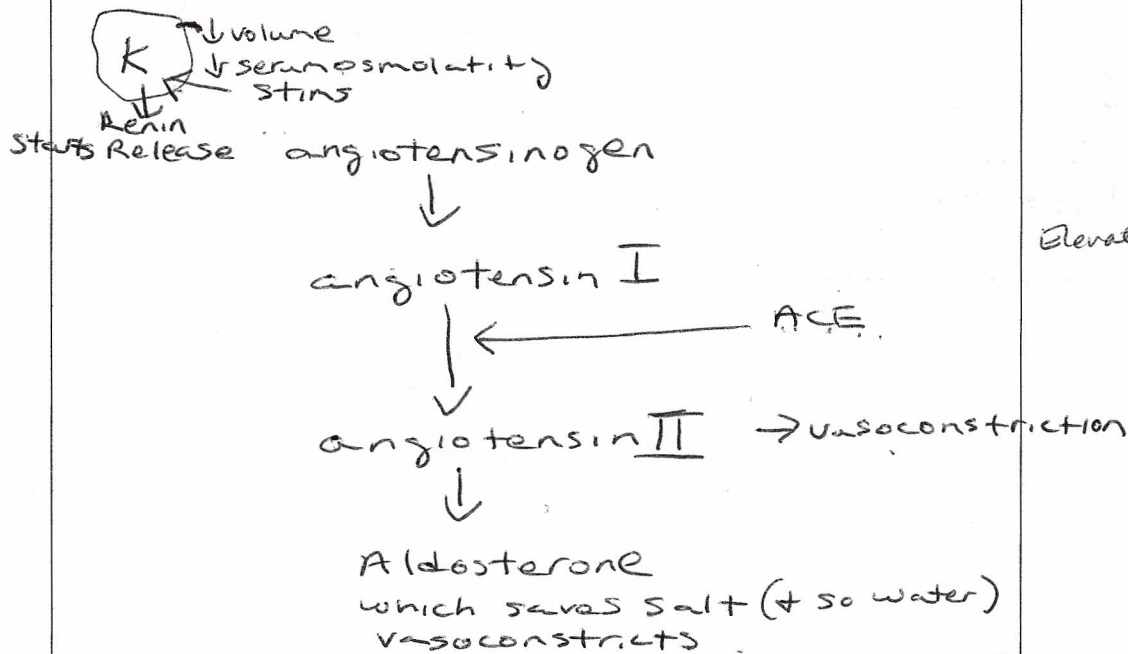 K
↓ volume
↓ serum osmolatity
stims
Renin
starts Release angiotensinogen
↓
angiotensin I
ACE
angiotensin II → vasoconstriction
↓
Aldosterone
which saves salt (+ so water)
vasoconstricts
Elevat